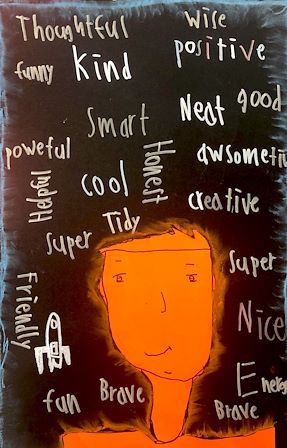 Thoughtful
wise
positive
funny
kind
Neat
good
Smart
poweful
Honest
awsometiu
Happy
cool
creative
Tidy
super
super
Friendly
Nice
fun
Brave
Energ
Brave